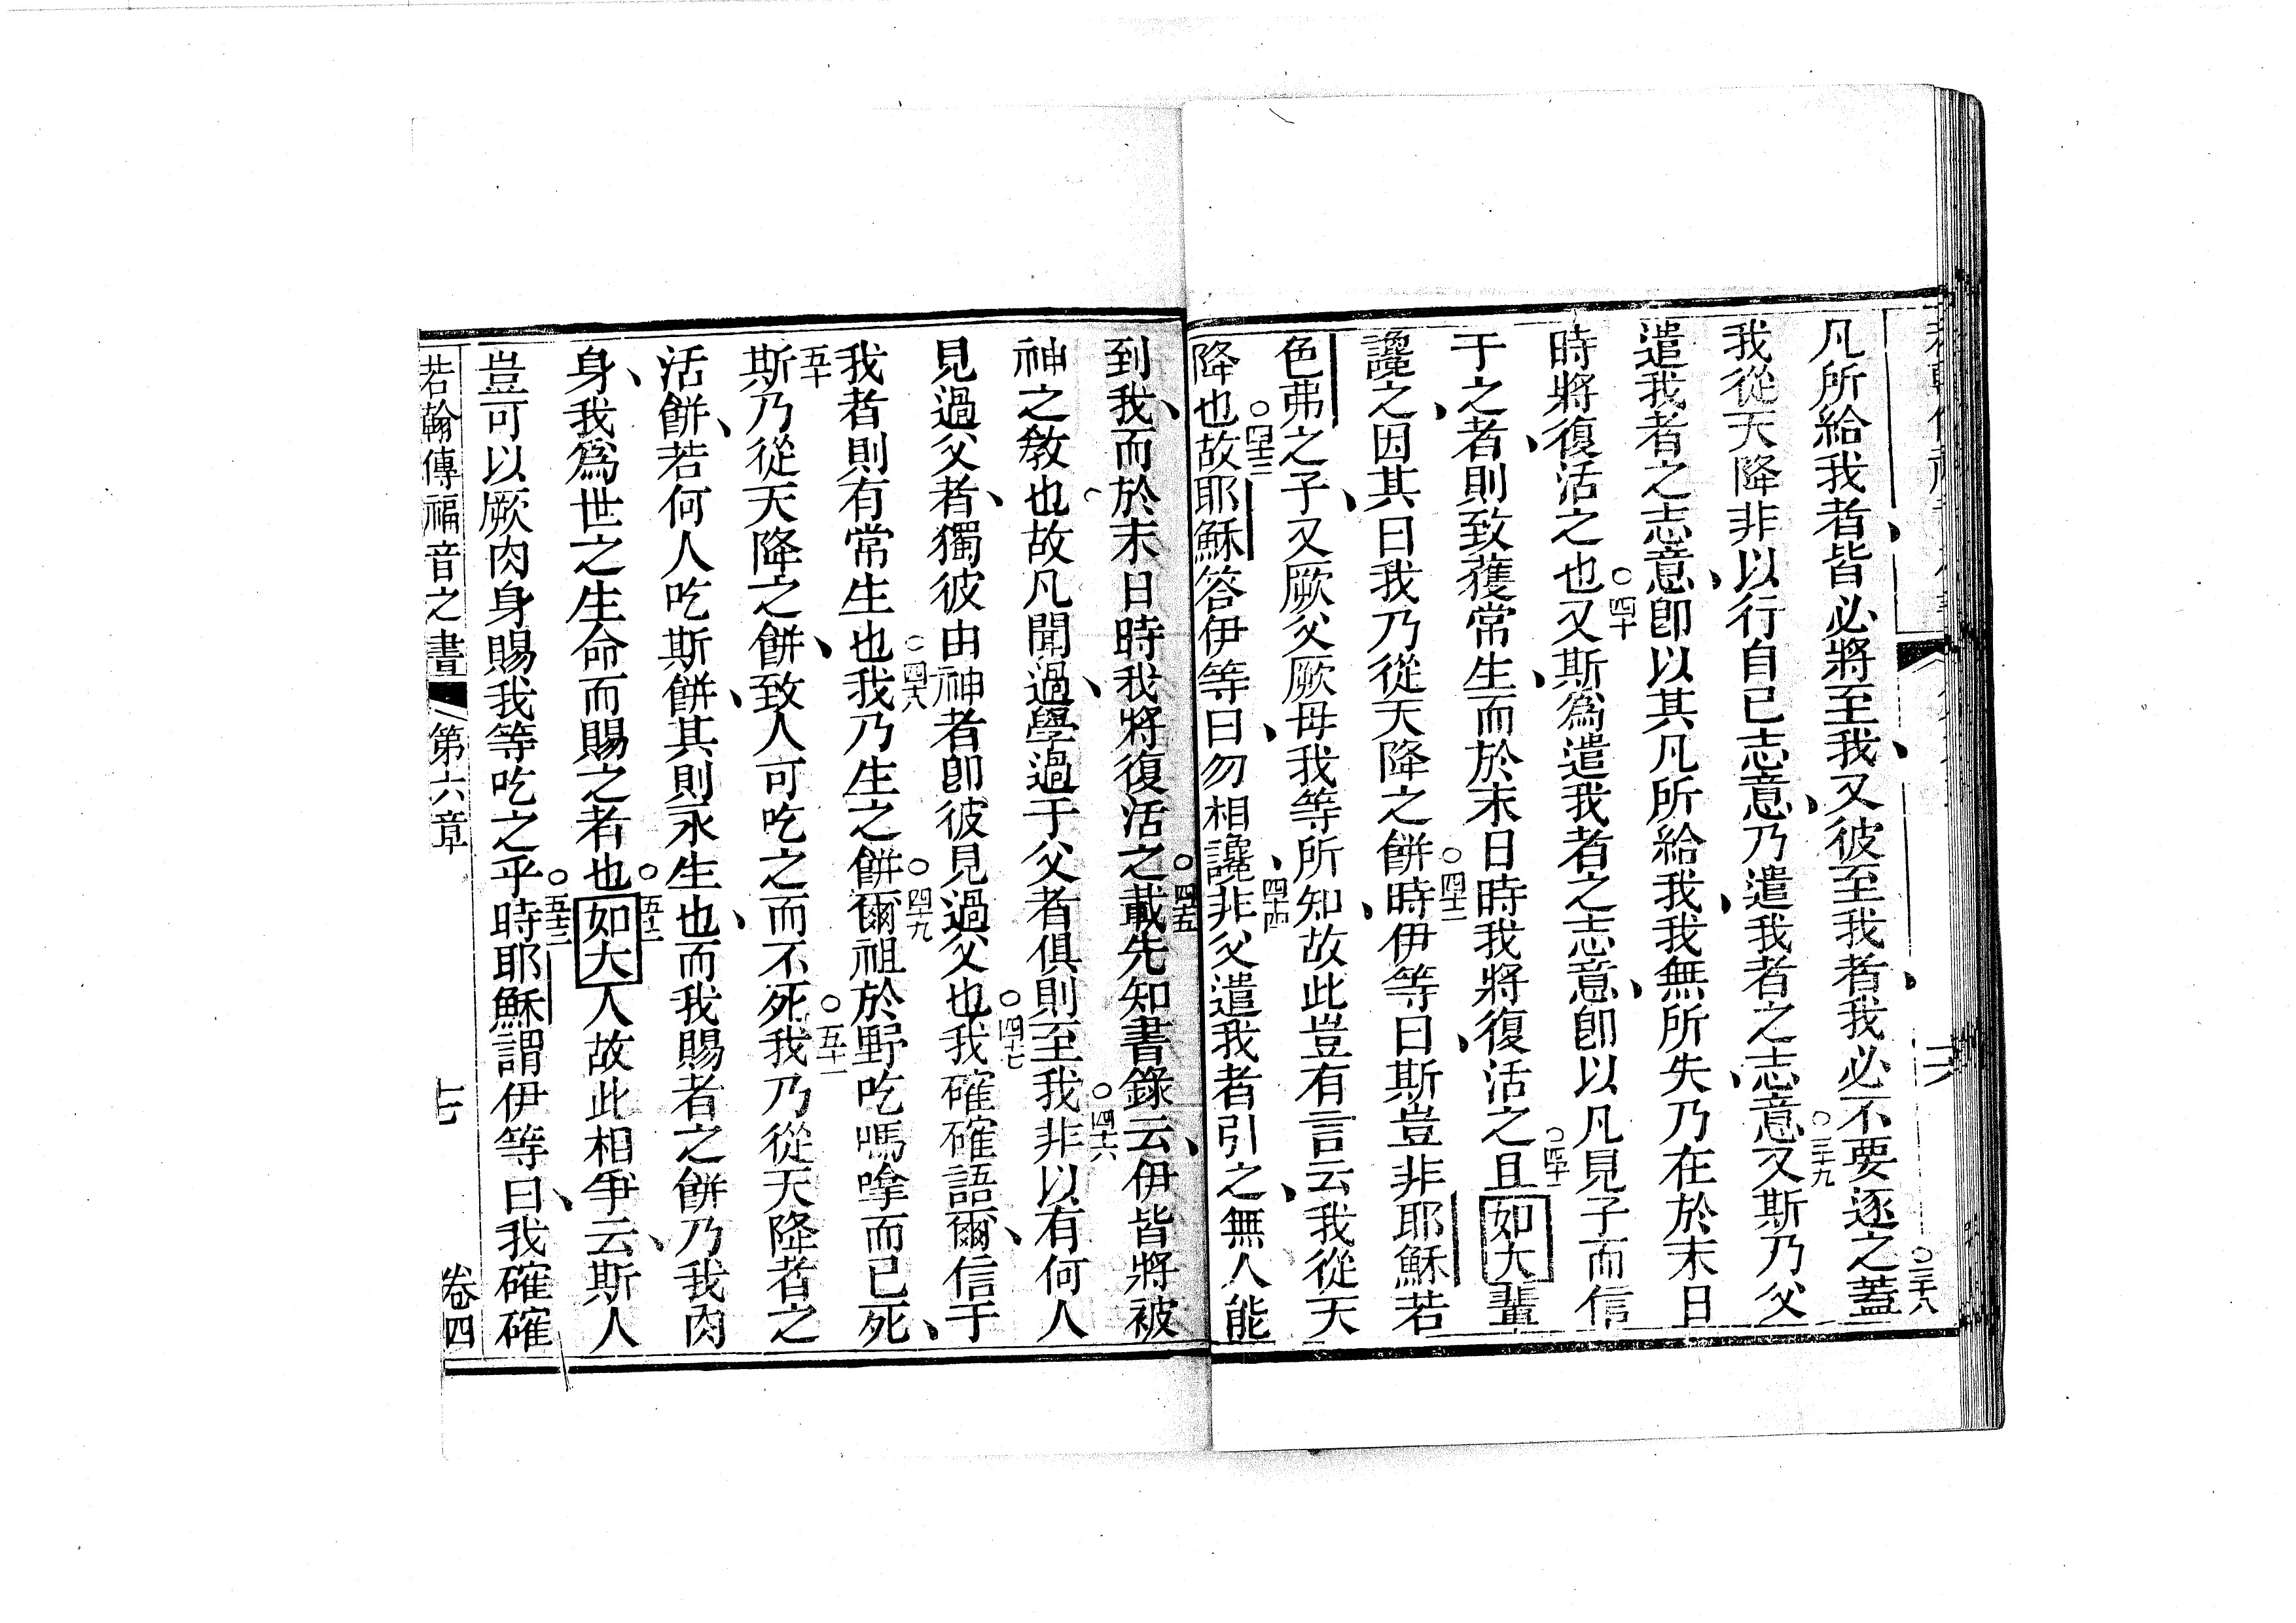 凡所給我者、皆必將至我、又彼至我者、我必不要逐之○三十八蓋
我從天降非以行自己志意、乃遣我者之志意○三十九又斯乃父
遣我者之志意、卽以其凡所給我、我無所失、乃在於末日
時將復活之也○四十又斯爲遣我者之志意、卽以凡見子而信
于之者、則致獲常生、而於末日時我將復活之○四十一且如大輩
讒之、因其曰我乃從天降之餠○四十二時伊等曰、斯豈非耶穌若
色弗之子、又厥父厥母我等所知、故此豈有言云我從天
降也○四十三故耶穌答伊等曰、勿相讒、四十四非父遣我者引之、無人能
到我、而於末日時我將復活之○四五載先知書錄云、伊皆將被
神之敎也故凡聞過、學過于父者俱則至我○四六非以有何人
見過父者、獨彼由神者卽彼見過父也○四十七我確確語爾、信于
我者則有常生也○四八我乃生之餠○四十九爾祖於野吃嗎嗱而已死、
五十斯乃從天降之餠、致人可吃之而不死○五十一我乃從天降者之
活餠、若何人吃斯餠、其則永生也、而我賜者之餠乃我肉
身、我爲世之生命而賜之者也○五十二如大人故此相爭云、斯人
豈可以厥肉身賜我等吃之乎○五十三時耶穌謂伊等曰、我確確
若翰傳福音之書 第六章 七 卷四